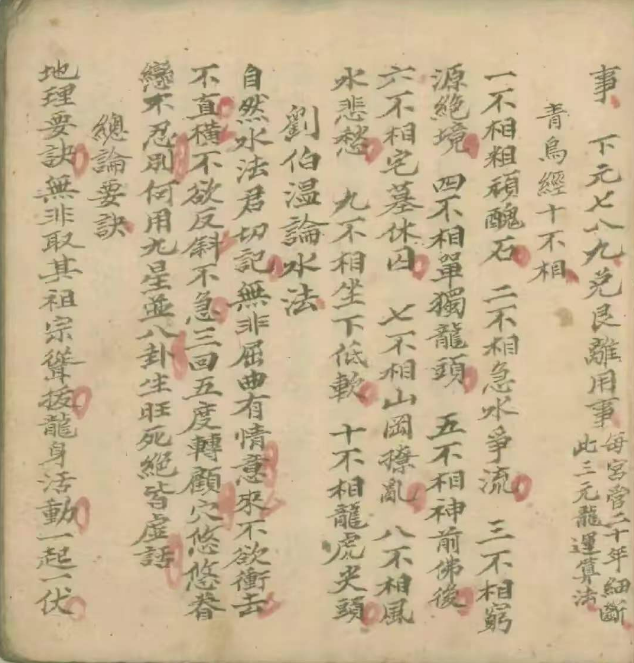 事 下元七八九兑艮離用事 每宮管二十年細斷
此三元龍運算法
青鳥經十不相
一不相粗頑醜石 二不相急水爭流 三不相窮
源絶境 四不相單獨龍頭 五不相神前佛後
六不相宅墓休囚 七不相山岡撩亂 八不相風
水悲愁 九不相坐下低軟 十不相龍虎尖頭
劉伯溫論水法
自然水法君切記無非屈曲有情意來不欲衝去
不直橫不欲反斜不急三回五度轉顧穴悠悠眷
戀不忍別何用九星並八卦生旺死絕皆虛話
總論要訣
地理要訣無非取其祖宗聳拔龍身活動一起一伏